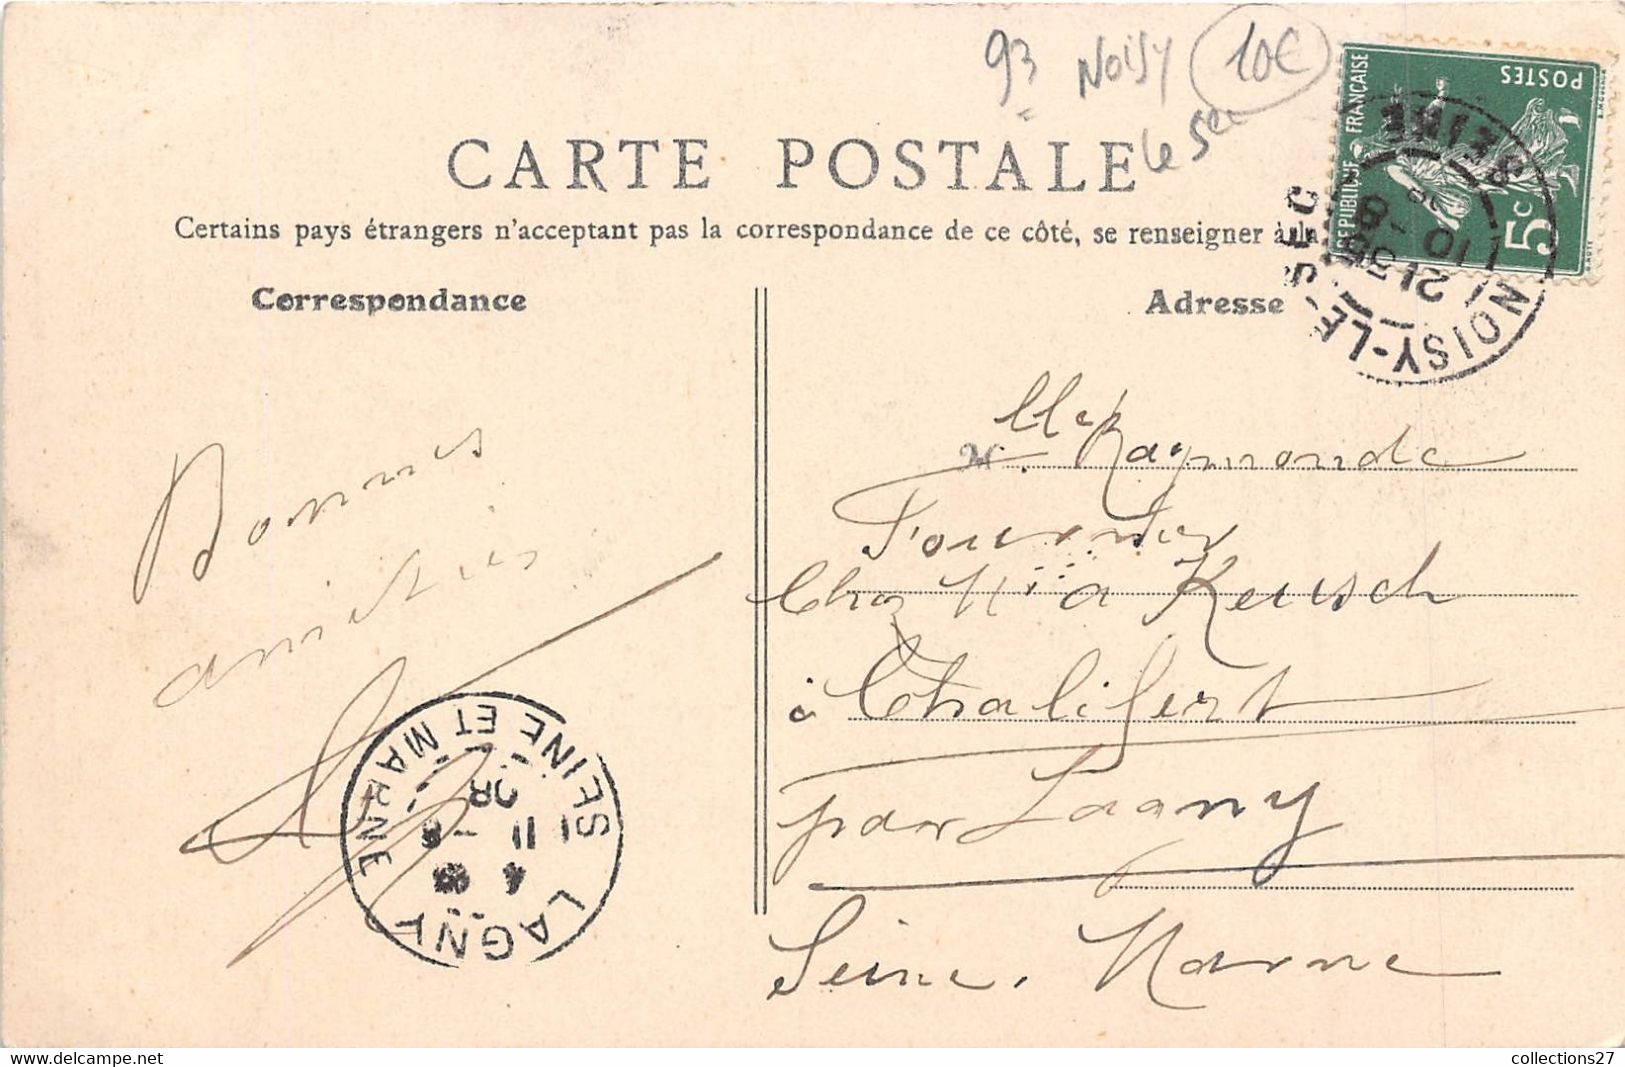 93 Noisy 10€
le Sec
REPUBLIQUE FRANÇAISE
POSTES
5c
NOISY-LE-SEC SEINE
21 35
10 - 8
CARTE POSTALE
Certains pays étrangers n'acceptent pas la correspondance de ce côté, se renseigner à la
Correspondance
Adresse
Bonnes
amitiés
Mlle Raymonde
Fournier
Chez Keusch
à Chalifert
par Lagny
Seine. Marne
LAGNY SEINE ET MARNE
4
11 - 8
08
collections27